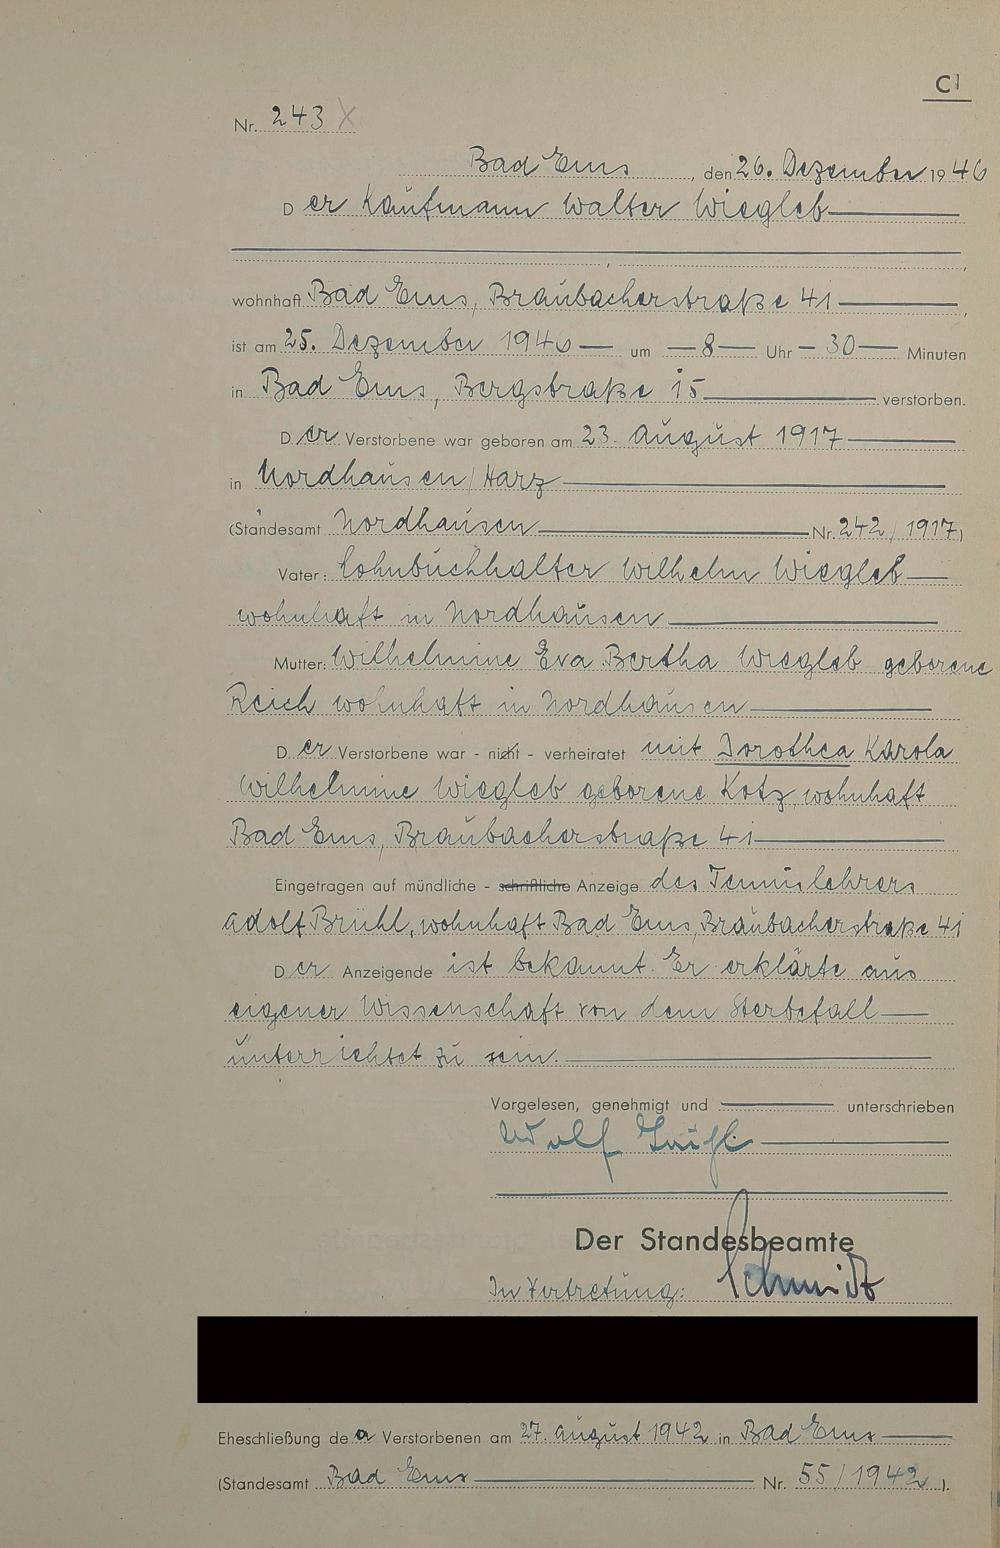 C1
Nr. 243
Bad Ems, den 26. Dezember 1946
Der Kaufmann Walter Wiegleb
wohnhaft Bad Ems, Braubacherstraße 41
ist am 25. Dezember 1946 um 8 Uhr 30 Minuten
in Bad Ems, Bergstraße 15 verstorben.
Der Verstorbene war geboren am 23. August 1917
in Nordhausen/Harz
(Standesamt Nordhausen Nr. 242/1917)
Vater: Lohnbuchhalter Wilhelm Wiegleb
wohnhaft in Nordhausen
Mutter: Wilhelmine Eva Bertha Wiegleb geborene
Reich wohnhaft in Nordhausen
Der Verstorbene war - nicht - verheiratet mit Dorothea Karola
Wilhelmine Wiegleb geborene Kotz, wohnhaft
Bad Ems, Braubacherstraße 41
Eingetragen auf mündliche - schriftliche Anzeige des Tennislehrers
Adolf Brühl, wohnhaft Bad Ems, Braubacherstraße 41
Der Anzeigende ist bekannt. Er erklärte aus
eigener Wissenschaft von dem Sterbefall
unterrichtet zu sein.
Vorgelesen, genehmigt und unterschrieben
Der Standesbeamte
In Vertretung: Schmidt
Eheschließung des Verstorbenen am 27. August 1942 in Bad Ems
(Standesamt Bad Ems Nr. 55/1942).